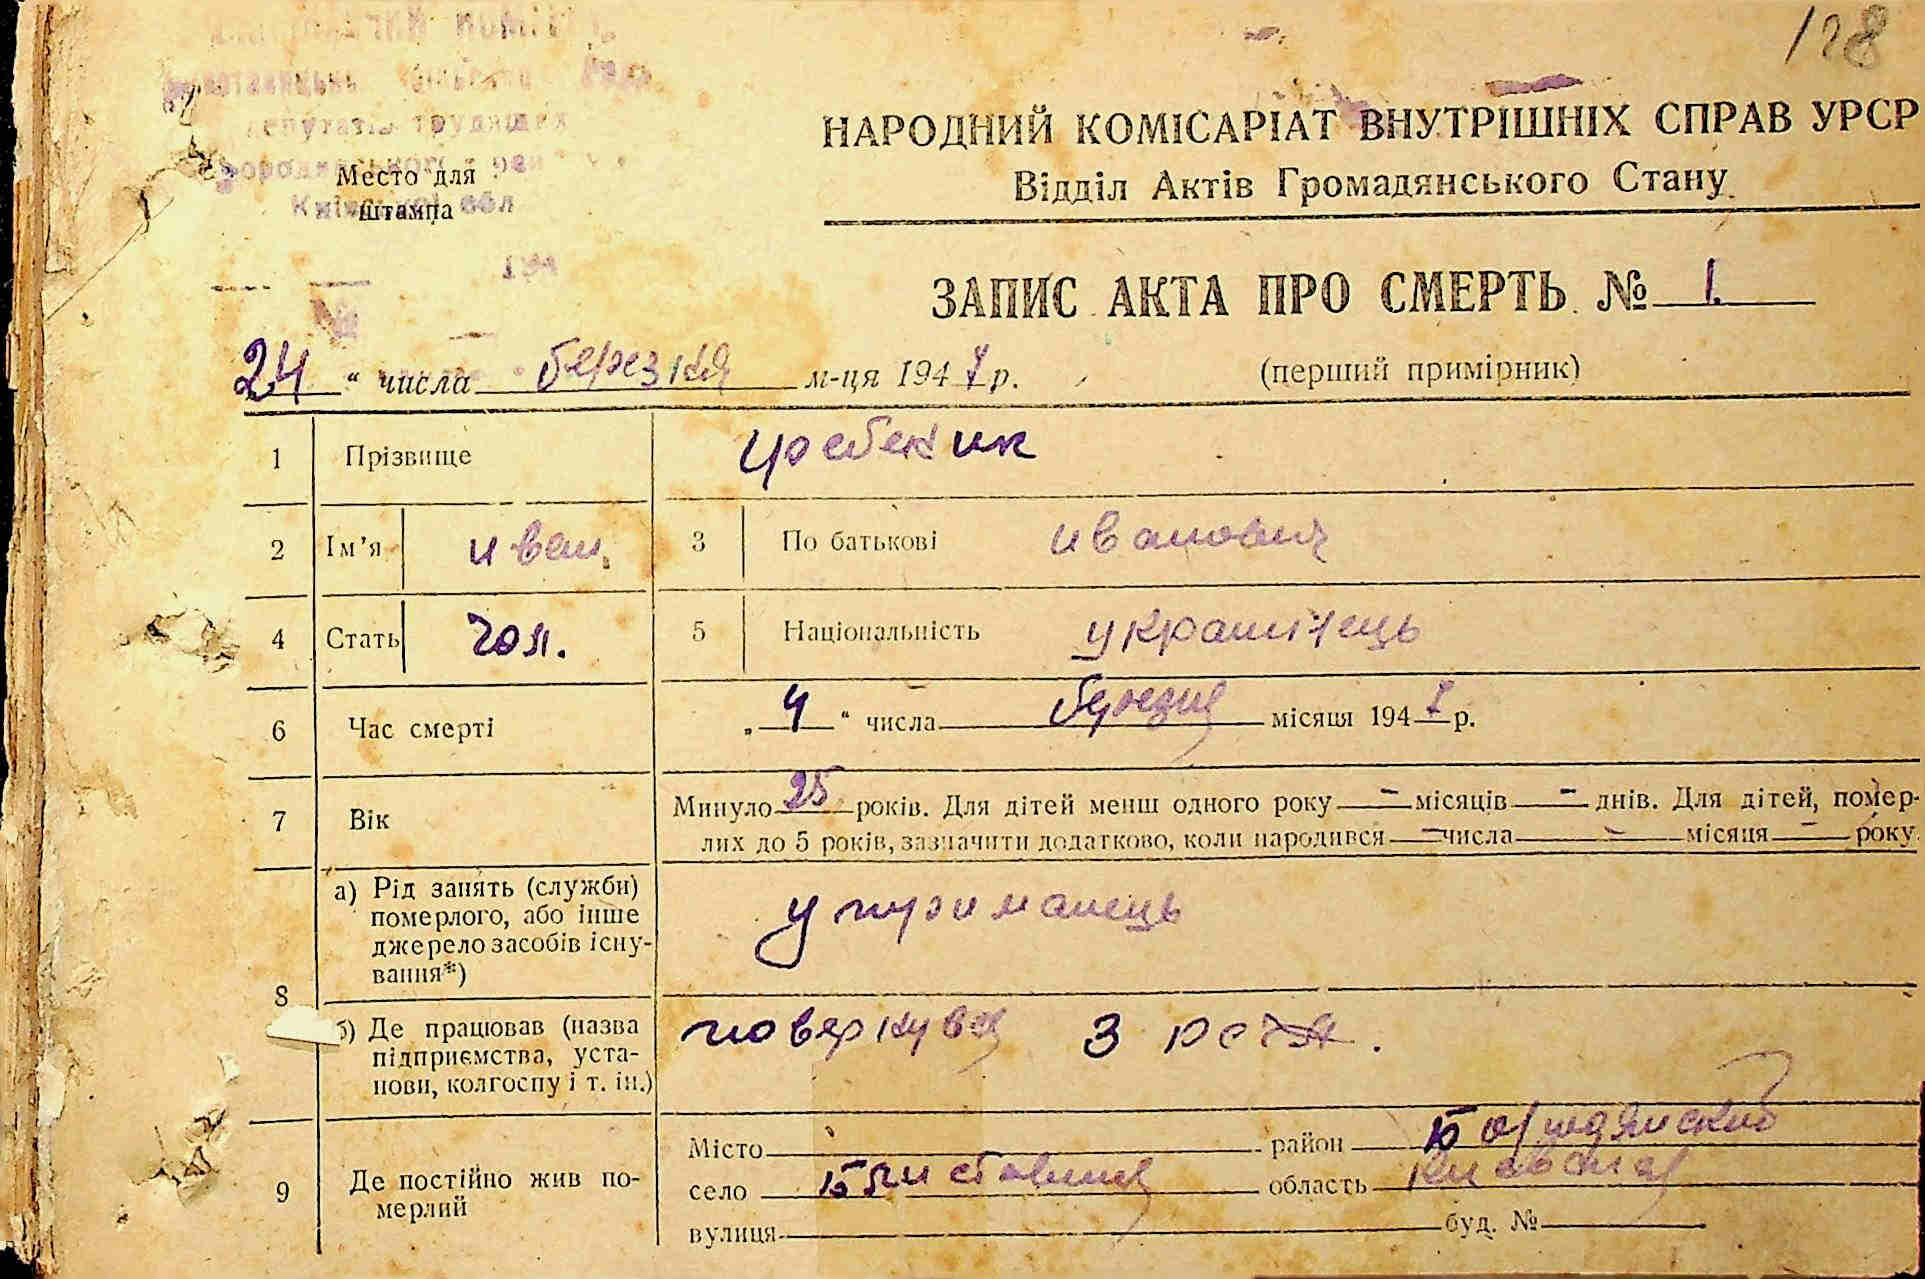 128
депутатів трудящих
Київської обл
Место для
штампа
194
НАРОДНИЙ КОМІСАРІАТ ВНУТРІШНІХ СПРАВ УРСР
Відділ Актів Громадянського Стану
ЗАПИС АКТА ПРО СМЕРТЬ № 1.
24 " числа березня м-ця 1947 р. (перший примірник)
1 Прізвище
2 Ім'я иван. 3 По батькові иванович
4 Стать чол. 5 Національність українець
6 Час смерті „ 4 " числа березня місяця 1947 р.
7 Вік Минуло 25 років. Для дітей менш одного року — місяців — днів. Для дітей, помер-
лих до 5 років, зазначити додатково, коли народився — числа — місяця — року
8 а) Рід занять (служби)
померлого, або інше
джерело засобів існу-
вання*)
утриманець
б) Де працював (назва
підприємства, уста-
нови, колгоспу і т. ін.)
повернувся з
9 Де постійно жив по-
мерлий
Місто район Бородянский
село область Киевская
вулиця буд. №